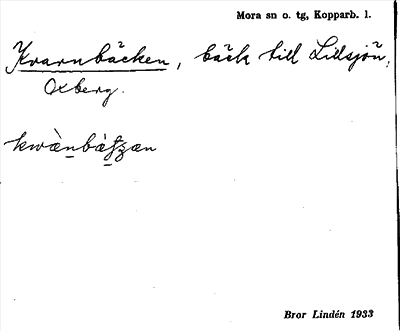 Mora sn o. tg, Kopparb. l.
Kvarnbäcken, bäck till Lillsjön,
Oxberg.
Bror Lindén 1933